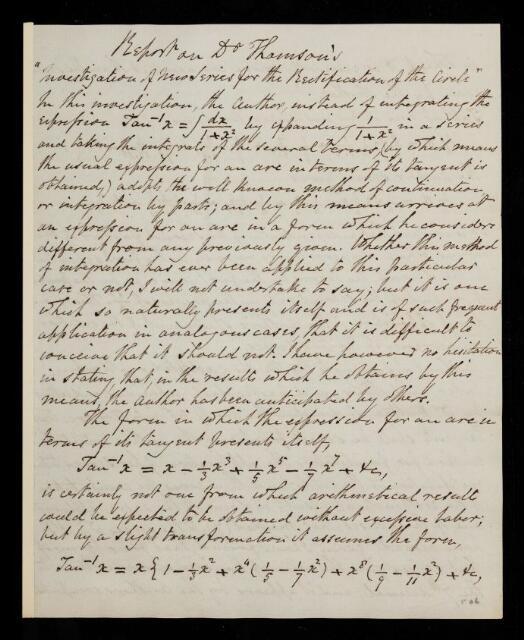 Report on Dr Thomson's
"Investigation of New Series for the Rectification of the Circle"
In this investigation, the Author, instead of integrating the
expression Tan⁻¹ x = ∫ dx/1+x² by expanding 1/1+x² in a series
and taking the integrals of the several terms (by which means
the usual expression for an arc in terms of its tangent is
obtained,) adopts the well known method of continuation
or integration by parts; and by this means arrives at
an expression for an arc in a form which he considers
different from any previously given. Whether this method
of integration has ever been applied to this particular
case or not, I will not undertake to say; but it is one
which so naturally presents itself and is of such frequent
application in analogous cases, that it is difficult to
conceive that it should not. I have however no hesitation
in stating that, in the results which he obtains by this
means, the author has been anticipated by others.
The form in which the expression for an arc in
terms of its tangent presents itself,
Tan⁻¹ x = x − 1/3 x³ + 1/5 x⁵ − 1/7 x⁷ + &c,
is certainly not one from which arithmetical result
could be expected to be obtained without excessive labor;
but by a slight transformation it assumes the form,
Tan⁻¹ x = x { 1 − 1/3 x² + x⁴ (1/5 − 1/7 x²) + x⁸ (1/9 − 1/11 x²) + &c,